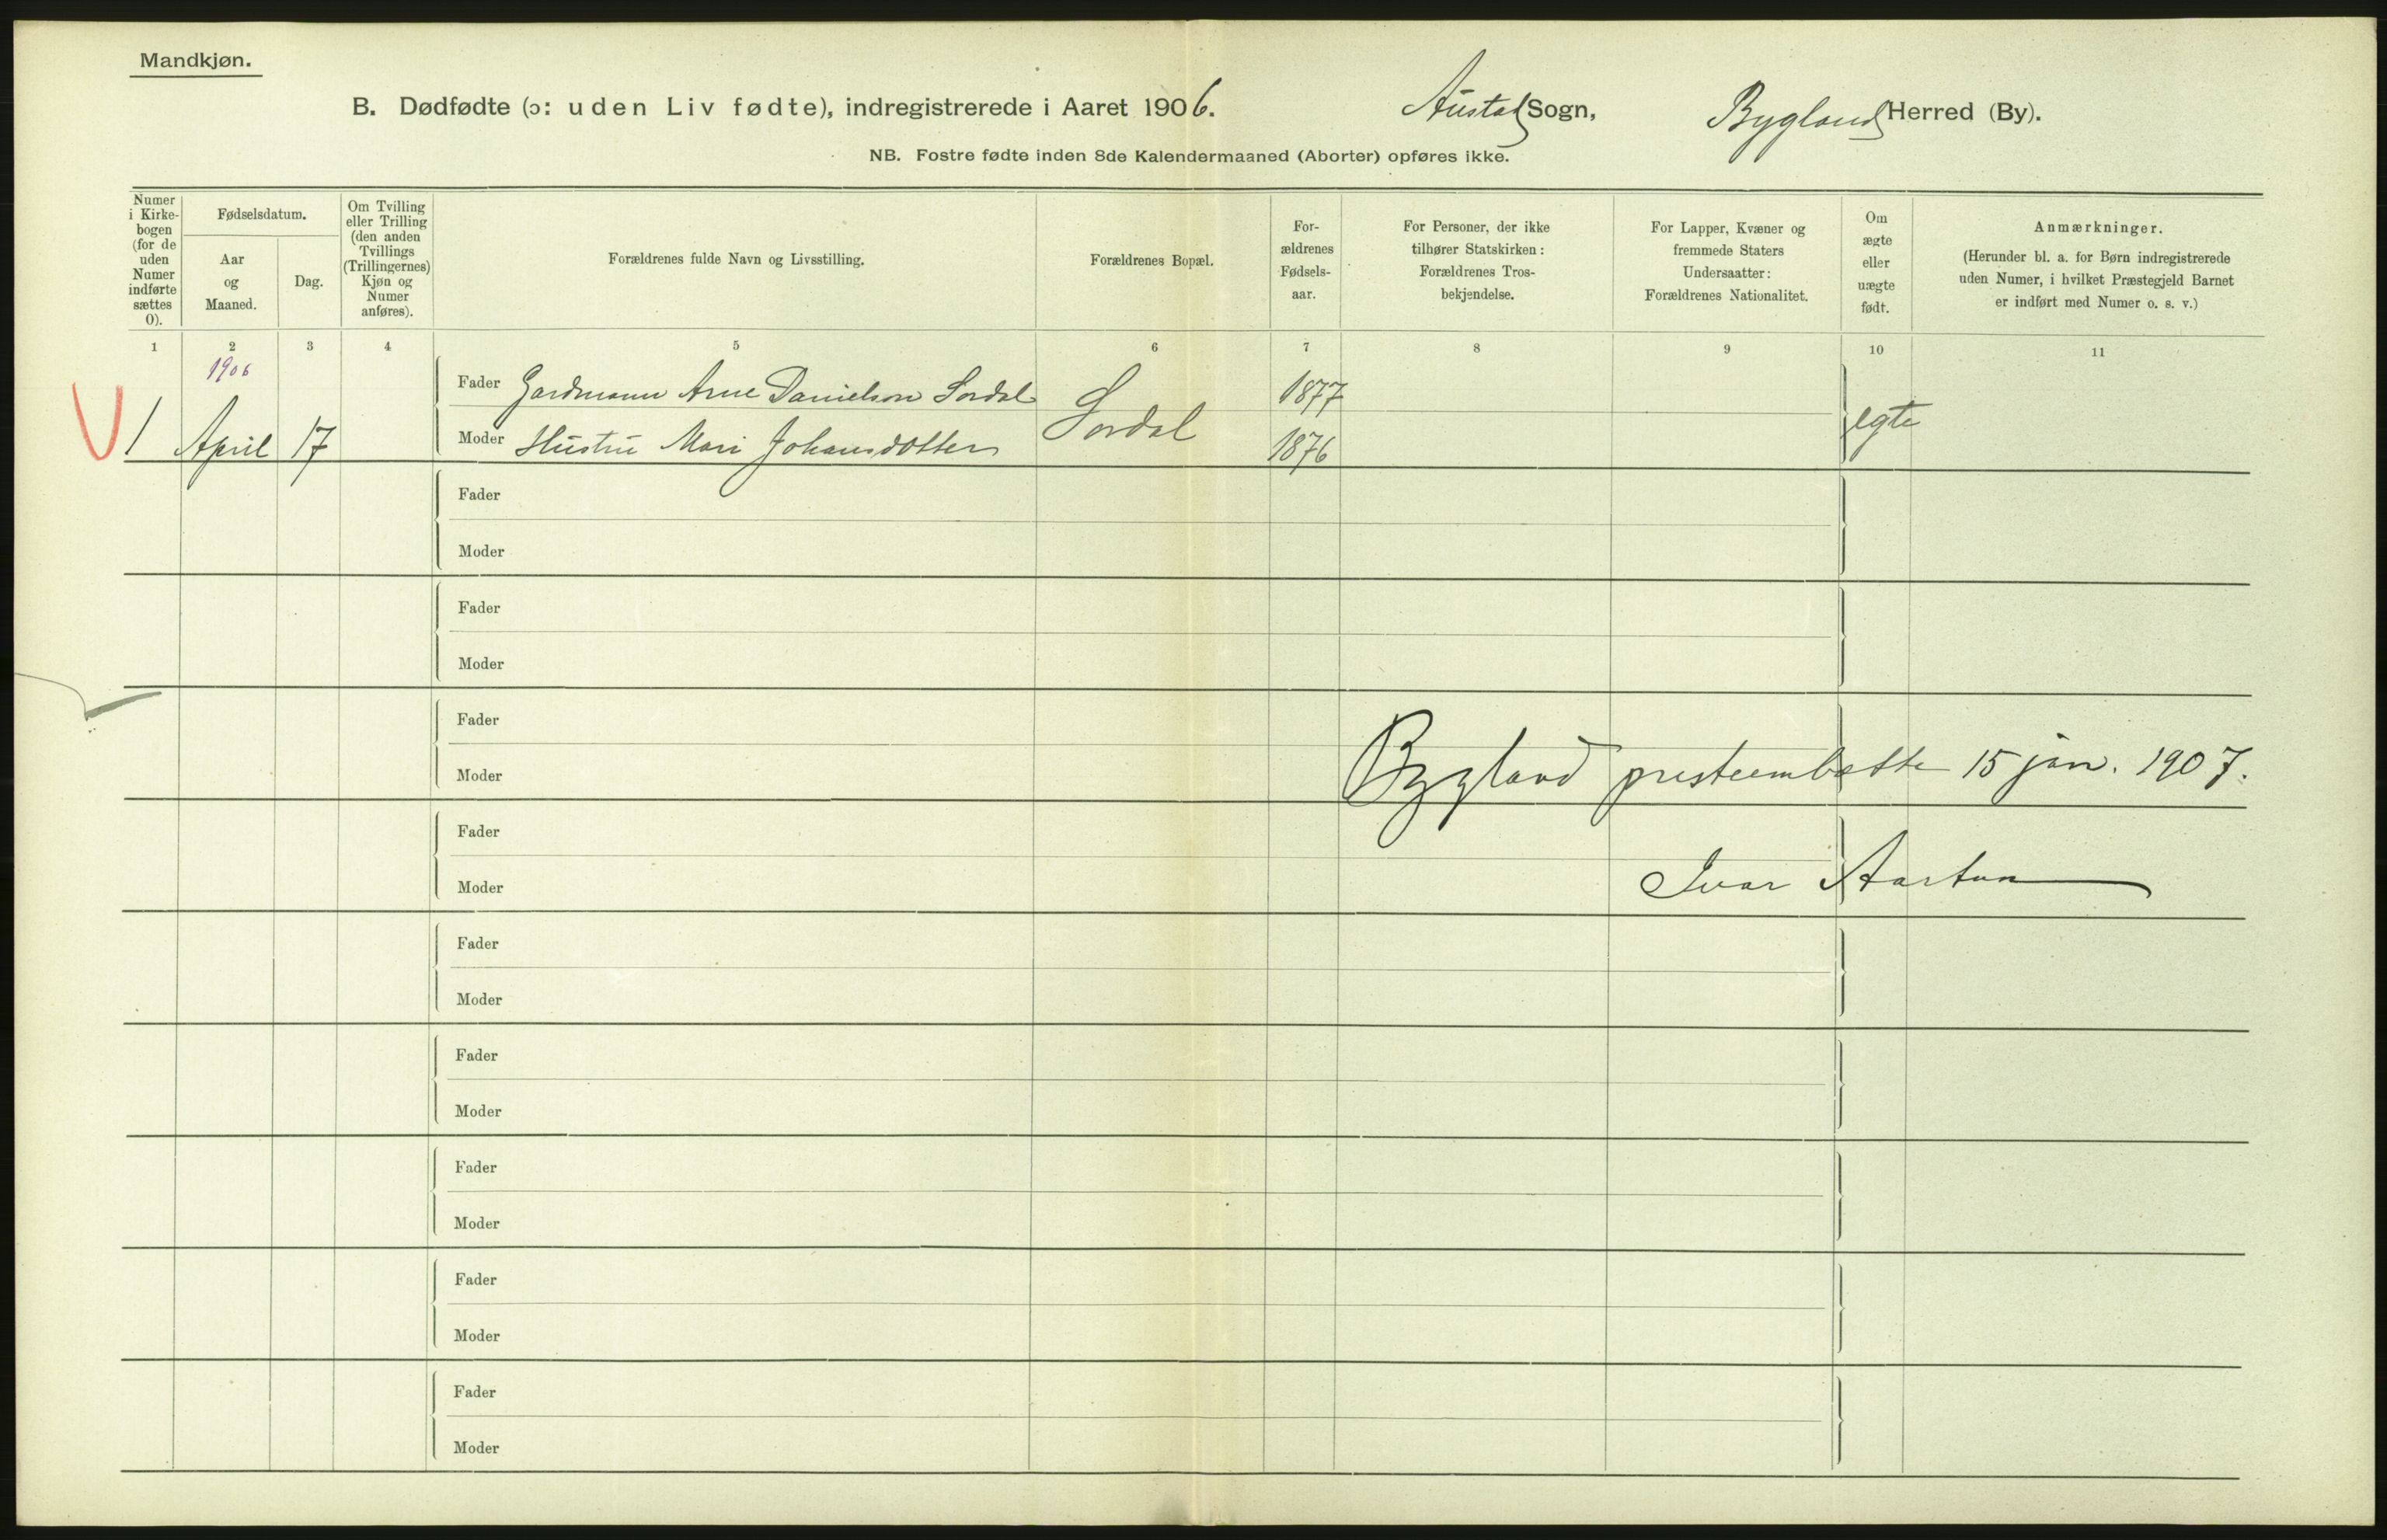 Mandkjøn.
B. Dødfødte (ɔ: uden Liv fødte), indregistrerede i Aaret 1906. Austad Sogn, Bygland Herred (By).
NB. Fostre fødte inden 8de Kalendermaaned (Aborter) opføres ikke.
Numer i Kirke-bogen (for de uden Numer indførte sættes 0).
Fødselsdatum.
Aar og Maaned.
Dag.
Om Tvilling eller Trilling (den anden Tvillings (Trillingernes) Kjøn og Numer anføres).
Forældrenes fulde Navn og Livsstilling.
Forældrenes Bopæl.
For-ældrenes Fødsels-aar.
For Personer, der ikke tilhører Statskirken: Forældrenes Tros-bekjendelse.
For Lapper, Kvæner og fremmede Staters Undersaatter: Forældrenes Nationalitet.
Om ægte eller uægte født.
Anmærkninger.
(Herunder bl. a. for Børn indregistrerede uden Numer, i hvilket Præstegjeld Barnet er indført med Numer o. s. v.)
1 2 3 4 5 6 7 8 9 10 11
1906
Fader Gardmann Arne Danielson Sordal 1877
1 April 17 Moder Hustru Mari Johansdotter Sordal 1876 egte
Fader
Moder
Fader
Moder
Fader
Moder Bygland presteembætte 15 jan. 1907.
Fader
Moder Ivar Aartun
Fader
Moder
Fader
Moder
Fader
Moder
Fader
Moder
Fader
Moder